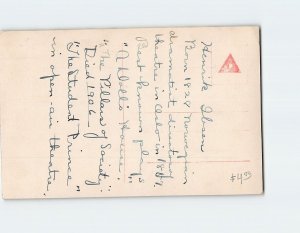 Henrik Ibsen
Born 1828 Norwegian
dramatist director of
theatre in Oslo in 1857
Best known plays
"A Doll's House".
"The Pillars of Society"
Died 1906
"The Student Prince"
in open-air theatre.
$4.95